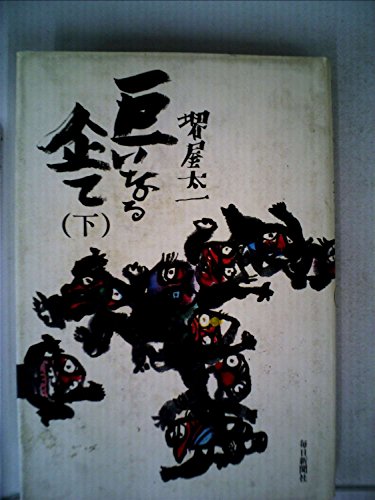 堺屋太一
巨いなる
企て
（下）
毎日新聞社